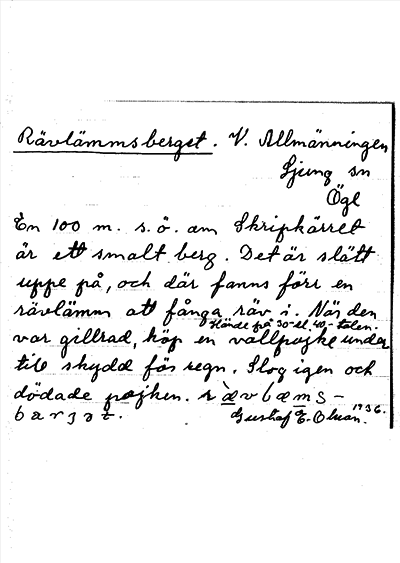 Rävlämmsberget. V. Allmänningen
Ljung sn
Ögl
En 100 m. s.ö. om Skripkärret
är ett smalt berg. Det är slätt
uppe på, och där fanns förr en
rävlämm att fånga räv i. När den
Hände på 30- el. 40-talen.
var gillrad, köp en vallpojke under
till skydd för regn. Slog igen och
dödade pojken. 
1936.
barʒət. Gustaf E. Olsson.